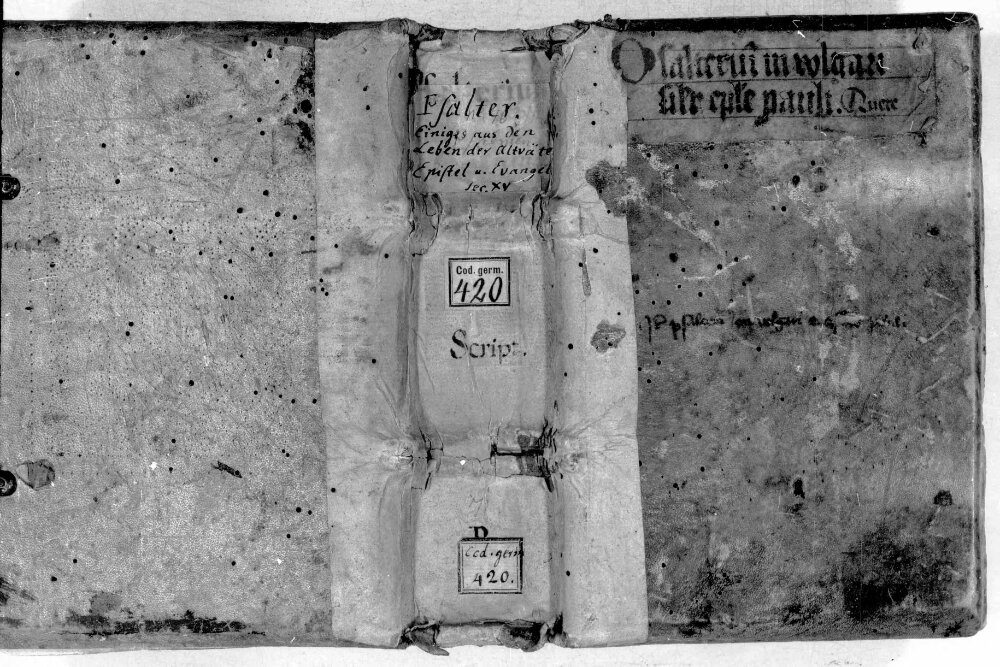 Psalter.
Einiges aus den
Leben der Altväte
Epistel u. Evangel
sec. XV
Cod. germ.
420
Script.
Cod. germ
420.
Psalteriū in wlgari
siłr eple pauli.